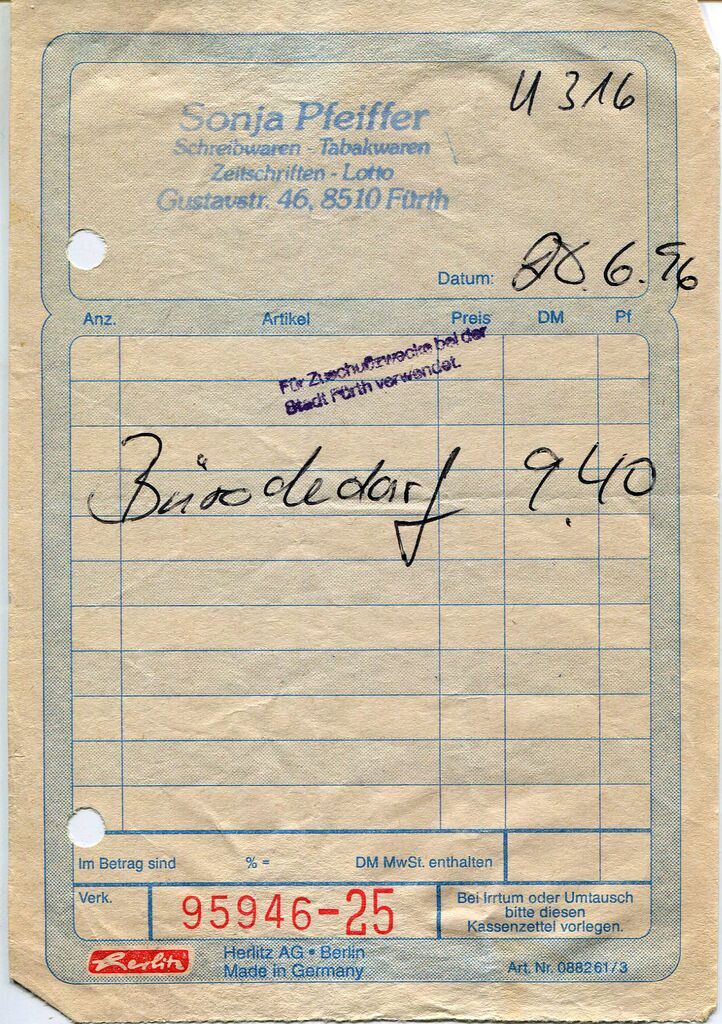 U 316
Sonja Pfeiffer
Schreibwaren - Tabakwaren
Zeitschriften - Lotto
Gustavstr. 46, 8510 Fürth
Datum: 28.6.96
Anz. Artikel Preis DM Pf
Für Zuschußzwecke bei der
Stadt Fürth verwendet.
Bürobedarf 9.40
Im Betrag sind % = DM MwSt. enthalten
Verk.
95946-25
Bei Irrtum oder Umtausch
bitte diesen
Kassenzettel vorlegen.
Herlitz
Herlitz AG • Berlin
Made in Germany
Art. Nr. 088261/3